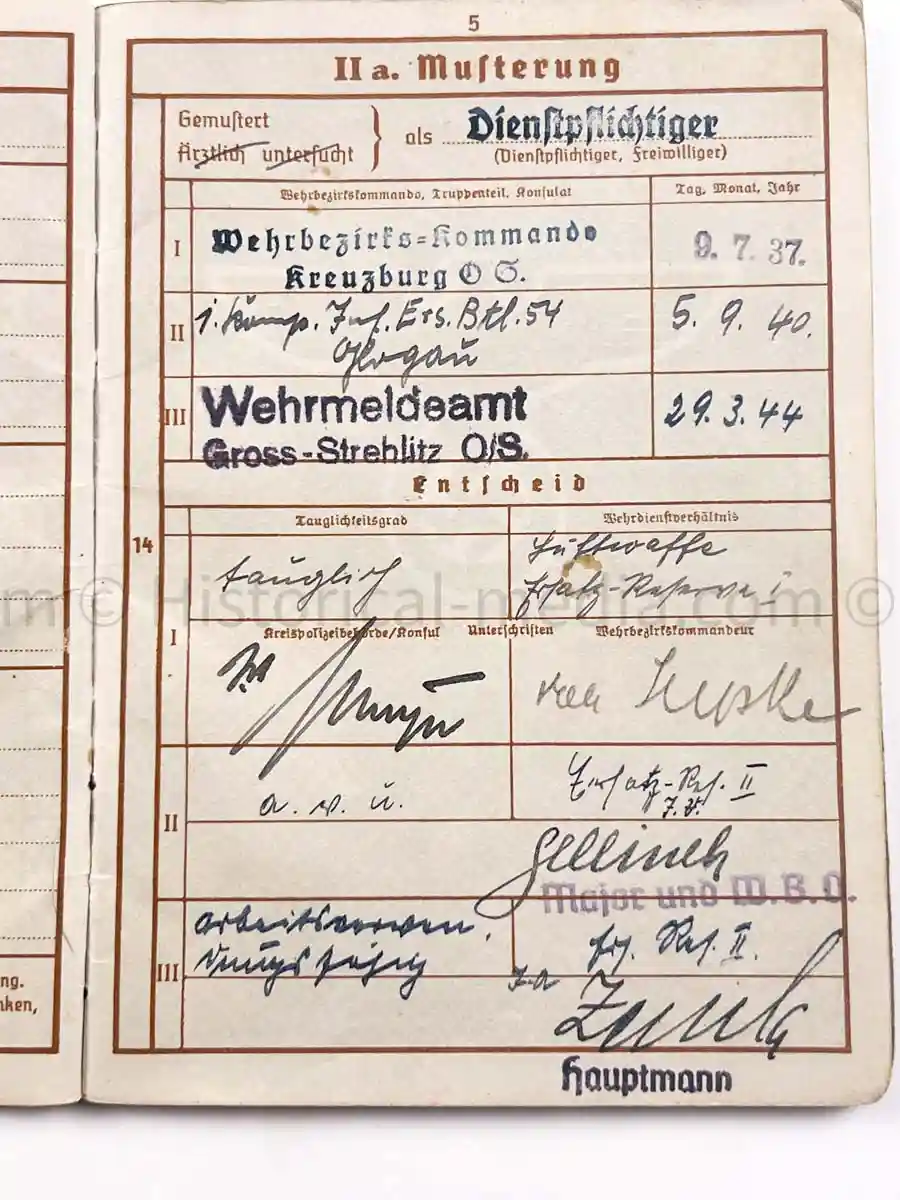 5
II a. Musterung
Gemustert
Ärztlich untersucht
als Dienstpflichtiger
(Dienstpflichtiger, Freiwilliger)
Wehrbezirkskommando, Truppenteil, Konsulat
Tag, Monat, Jahr
I
Wehrbezirks=Kommando
Kreuzburg O S.
9. 7. 37.
II
1. Komp. Inf. Ers. Btl. 54
Glogau
5. 9. 40.
III
Wehrmeldeamt
Gross-Strehlitz O/S.
29. 3. 44
Entscheid
14
Tauglichkeitsgrad
Wehrdienstverhältnis
I
tauglich
Luftwaffe
Ersatz-Reserve I
Kreispolizeibehörde/Konsul Unterschriften Wehrbezirkskommandeur
II
a. v. u.
Ersatz-Res. II
Gellinek
Major und W.B.O.
III
arbeitsverwen
dungsfähig
Ers. Res. II.
Hauptmann
ng.
nken,
m © Historical-media.com ©